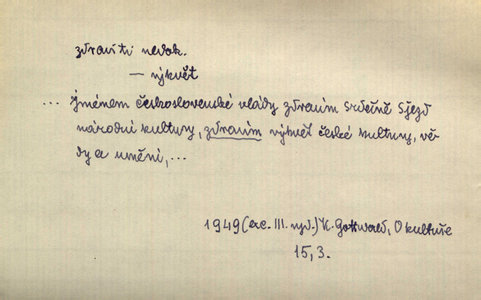 zdraviti nedok.
— výkvět
... jménem československé vlády zdravím srdečně Sjezd
národní kultury, zdravím výkvět české kultury, vě-
dy a umění, ...
1949 (exc. III. vyd.) K. Gottwald, O kultuře
15, 3.